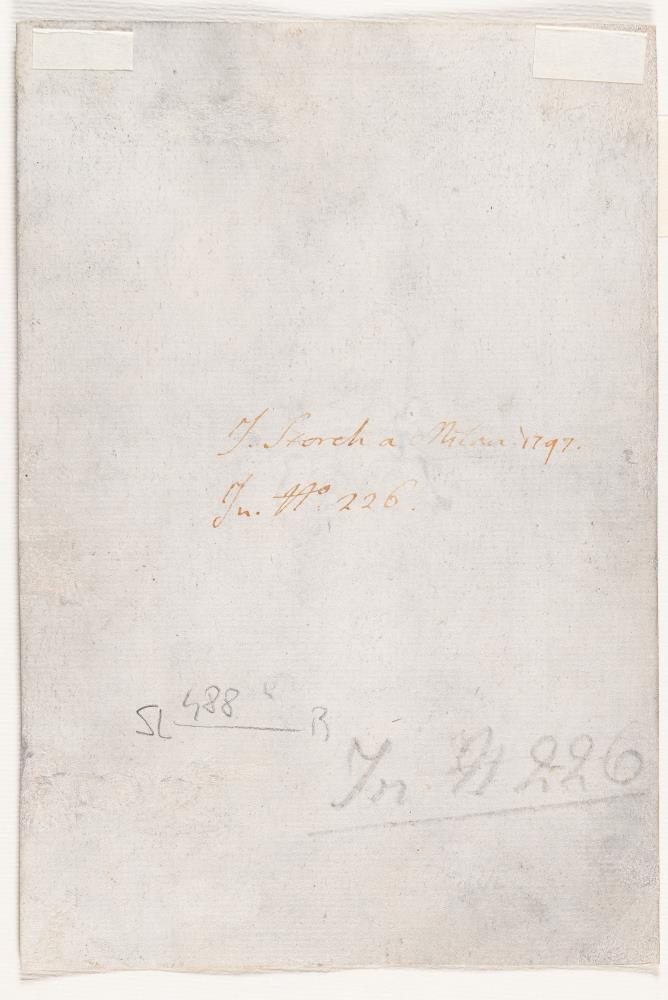 J. Storck a Milan 1797.
In. No. 226.
SL 488 B
In No 226